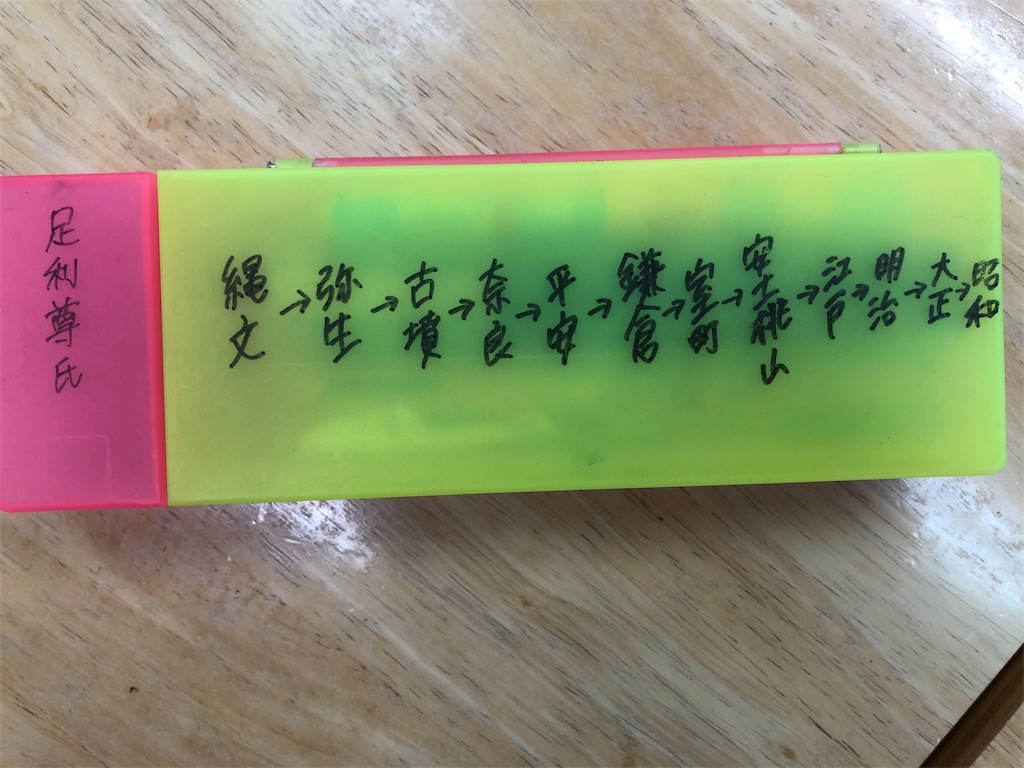 足利尊氏
縄文→弥生→古墳→奈良→平安→鎌倉→室町→安土桃山→江戸→明治→大正→昭和